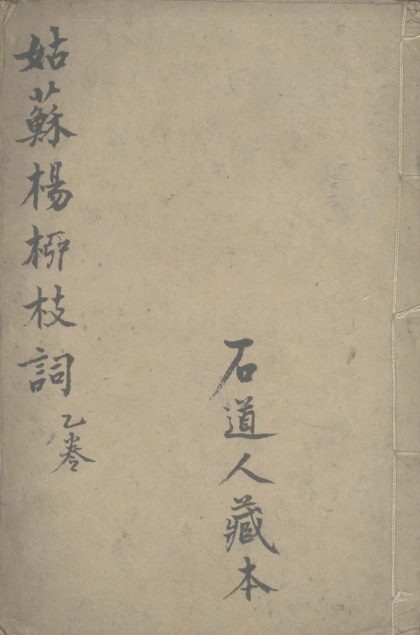 石道人藏本
姑蘇楊柳枝詞 乙卷